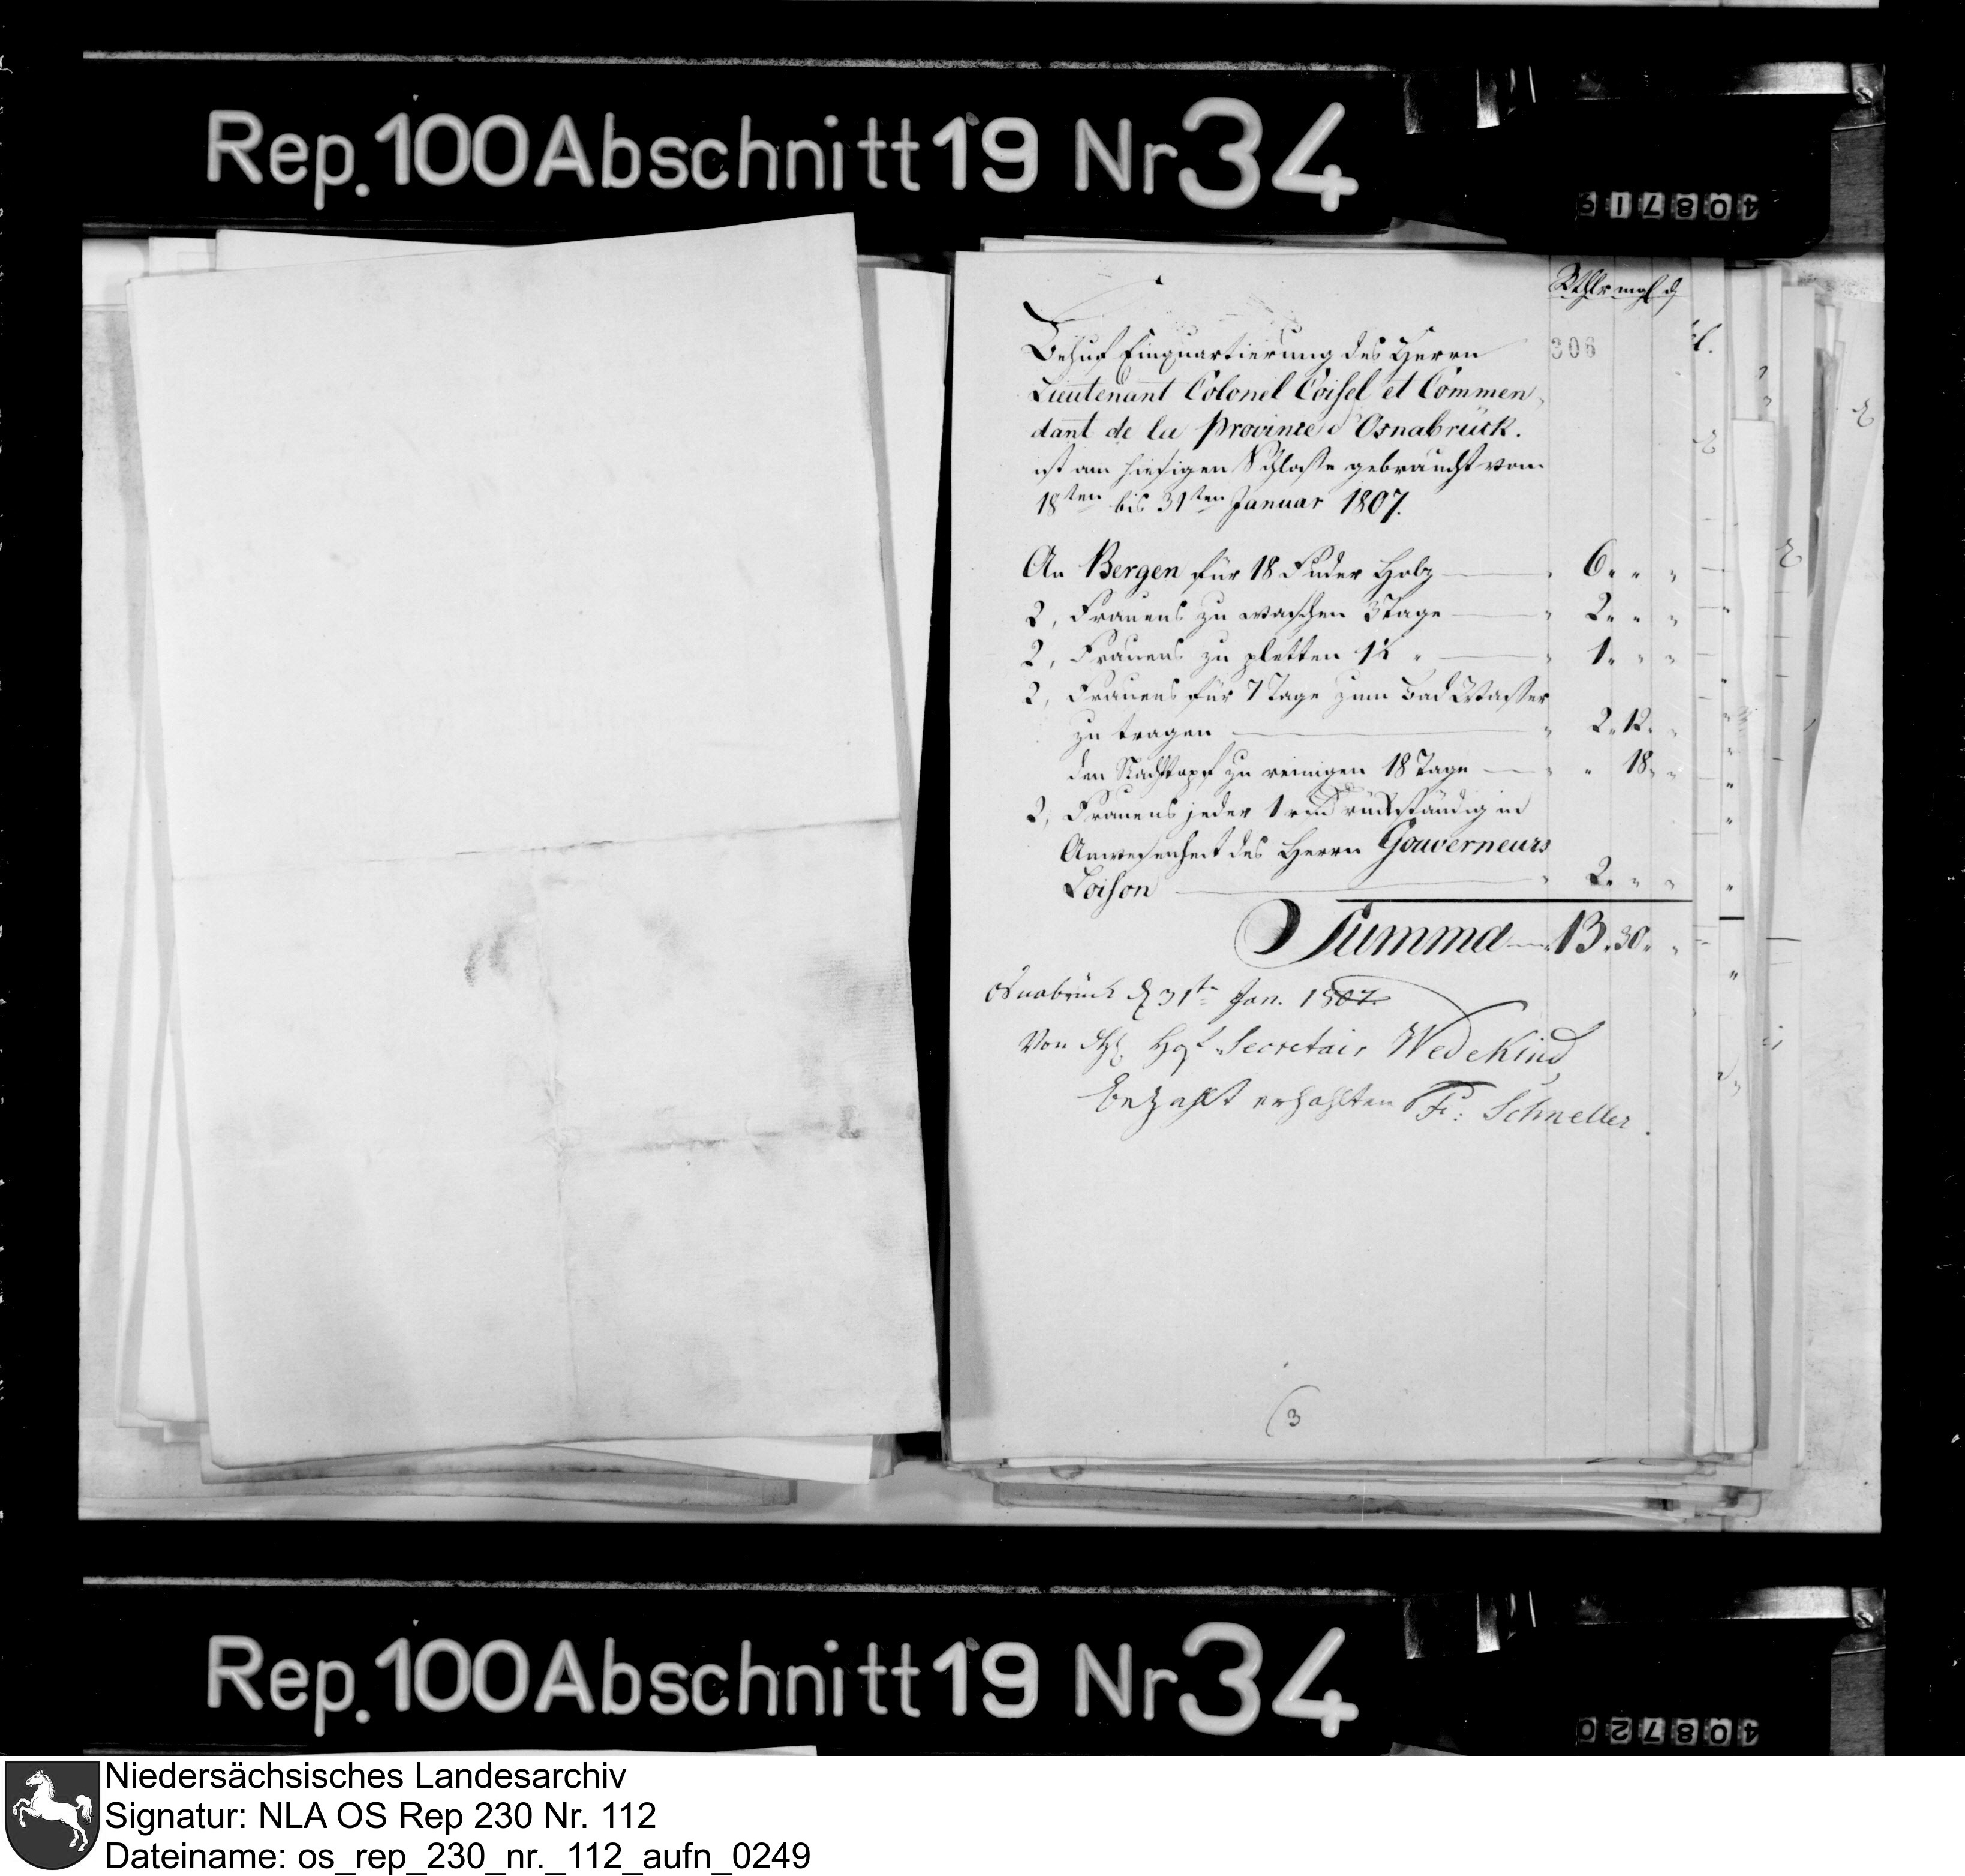 Rep.100 Abschnitt 19 Nr 34
408719
Rthlr mgl ₰
306
Behuf Einquartierung des Herrn
Lieutenant Colonel Coisel et Commen,
dant de la Province d'Osnabrück.
ist am hiesigen Schlosse gebraucht vom
18ten bis 31ten Januar 1807.
An Bergen für 18 Fuder Holz — 6 " "
2, Frauens zu waschen 3 Tage — 2 " "
2, Frauens zu pletten 1½ " — 1 " "
2, Frauens für 7 Tage zum Bad Wasser
zu tragen — 2 " 12 "
den Nachttopf zu reinigen 18 Tage — " 18 "
2, Frauens jeder 1 rückständig in
Anwesenheit des Herrn Gouverneurs
Loison — 2 " "
Summa — 13 " 30 "
Osnabrück 31t Jan. 1807.
Von Secretair Wedekind
bezahlt erhalten Fr: Schneller.
3
Rep.100 Abschnitt 19 Nr 34
408720
Niedersächsisches Landesarchiv
Signatur: NLA OS Rep 230 Nr. 112
Dateiname: os_rep_230_nr._112_aufn_0249